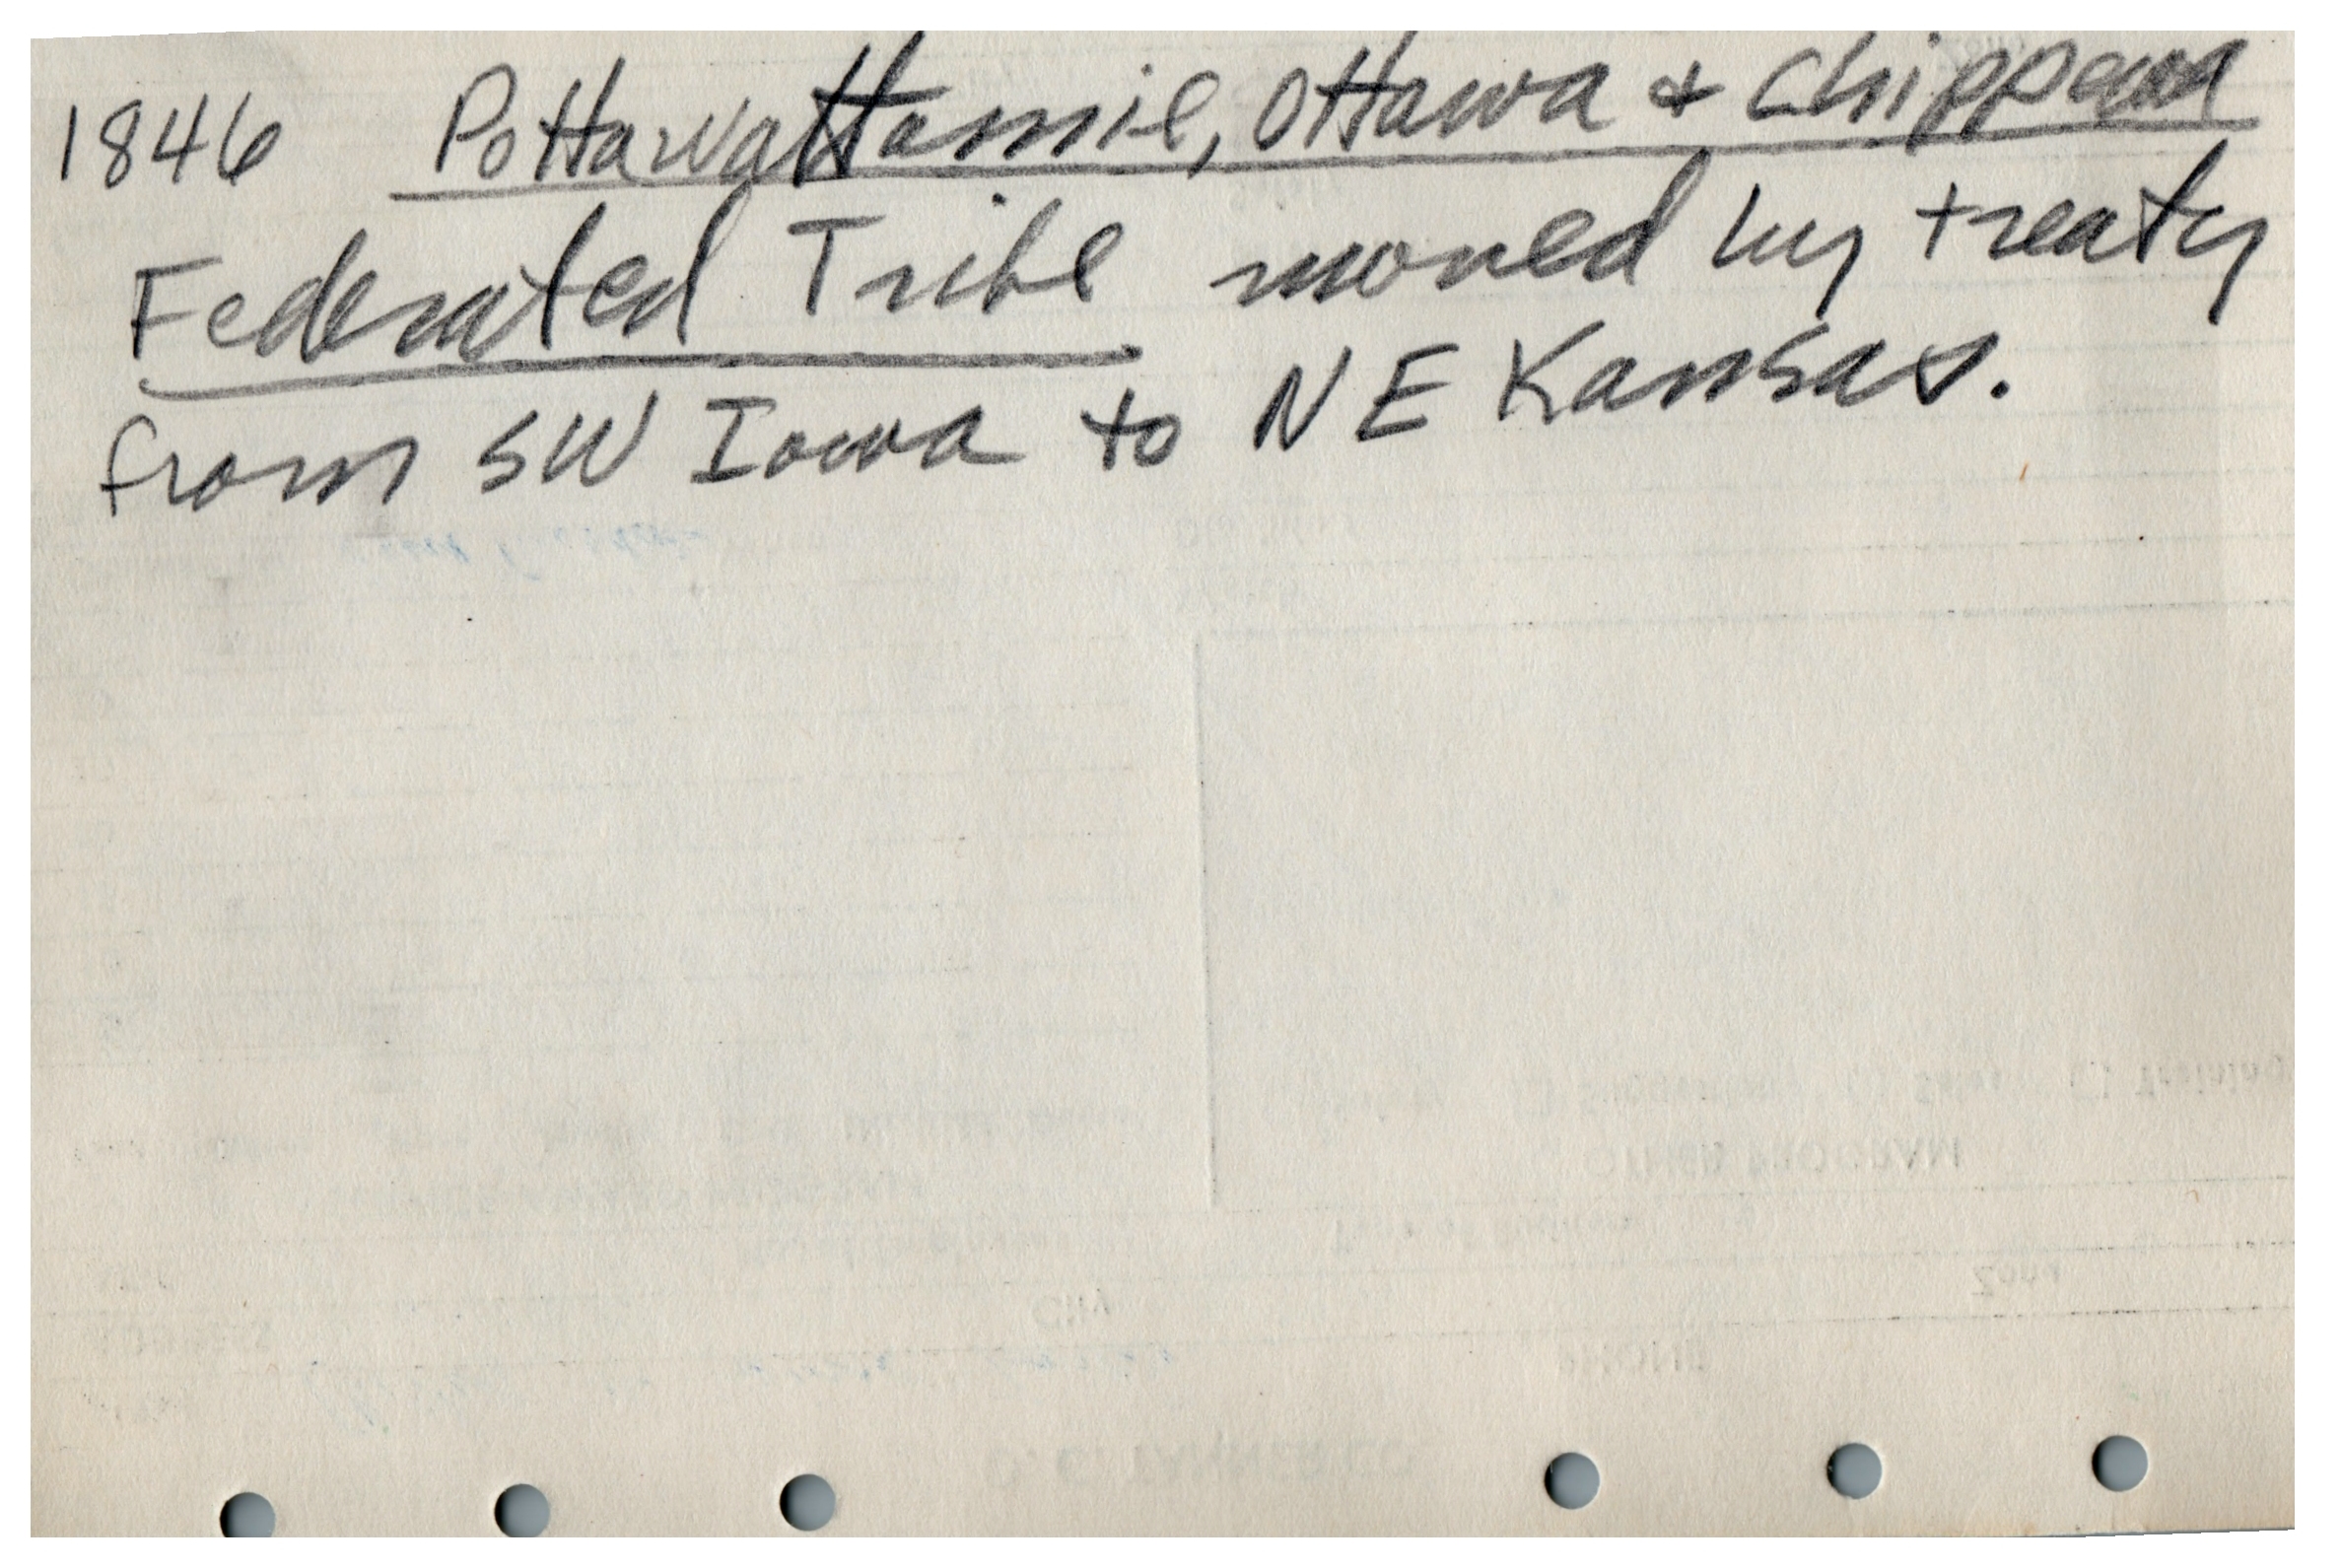 1846 Pottawattamie, Ottawa + Chippewa
Federated Tribe moved by treaty
from SW Iowa to NE Kansas.